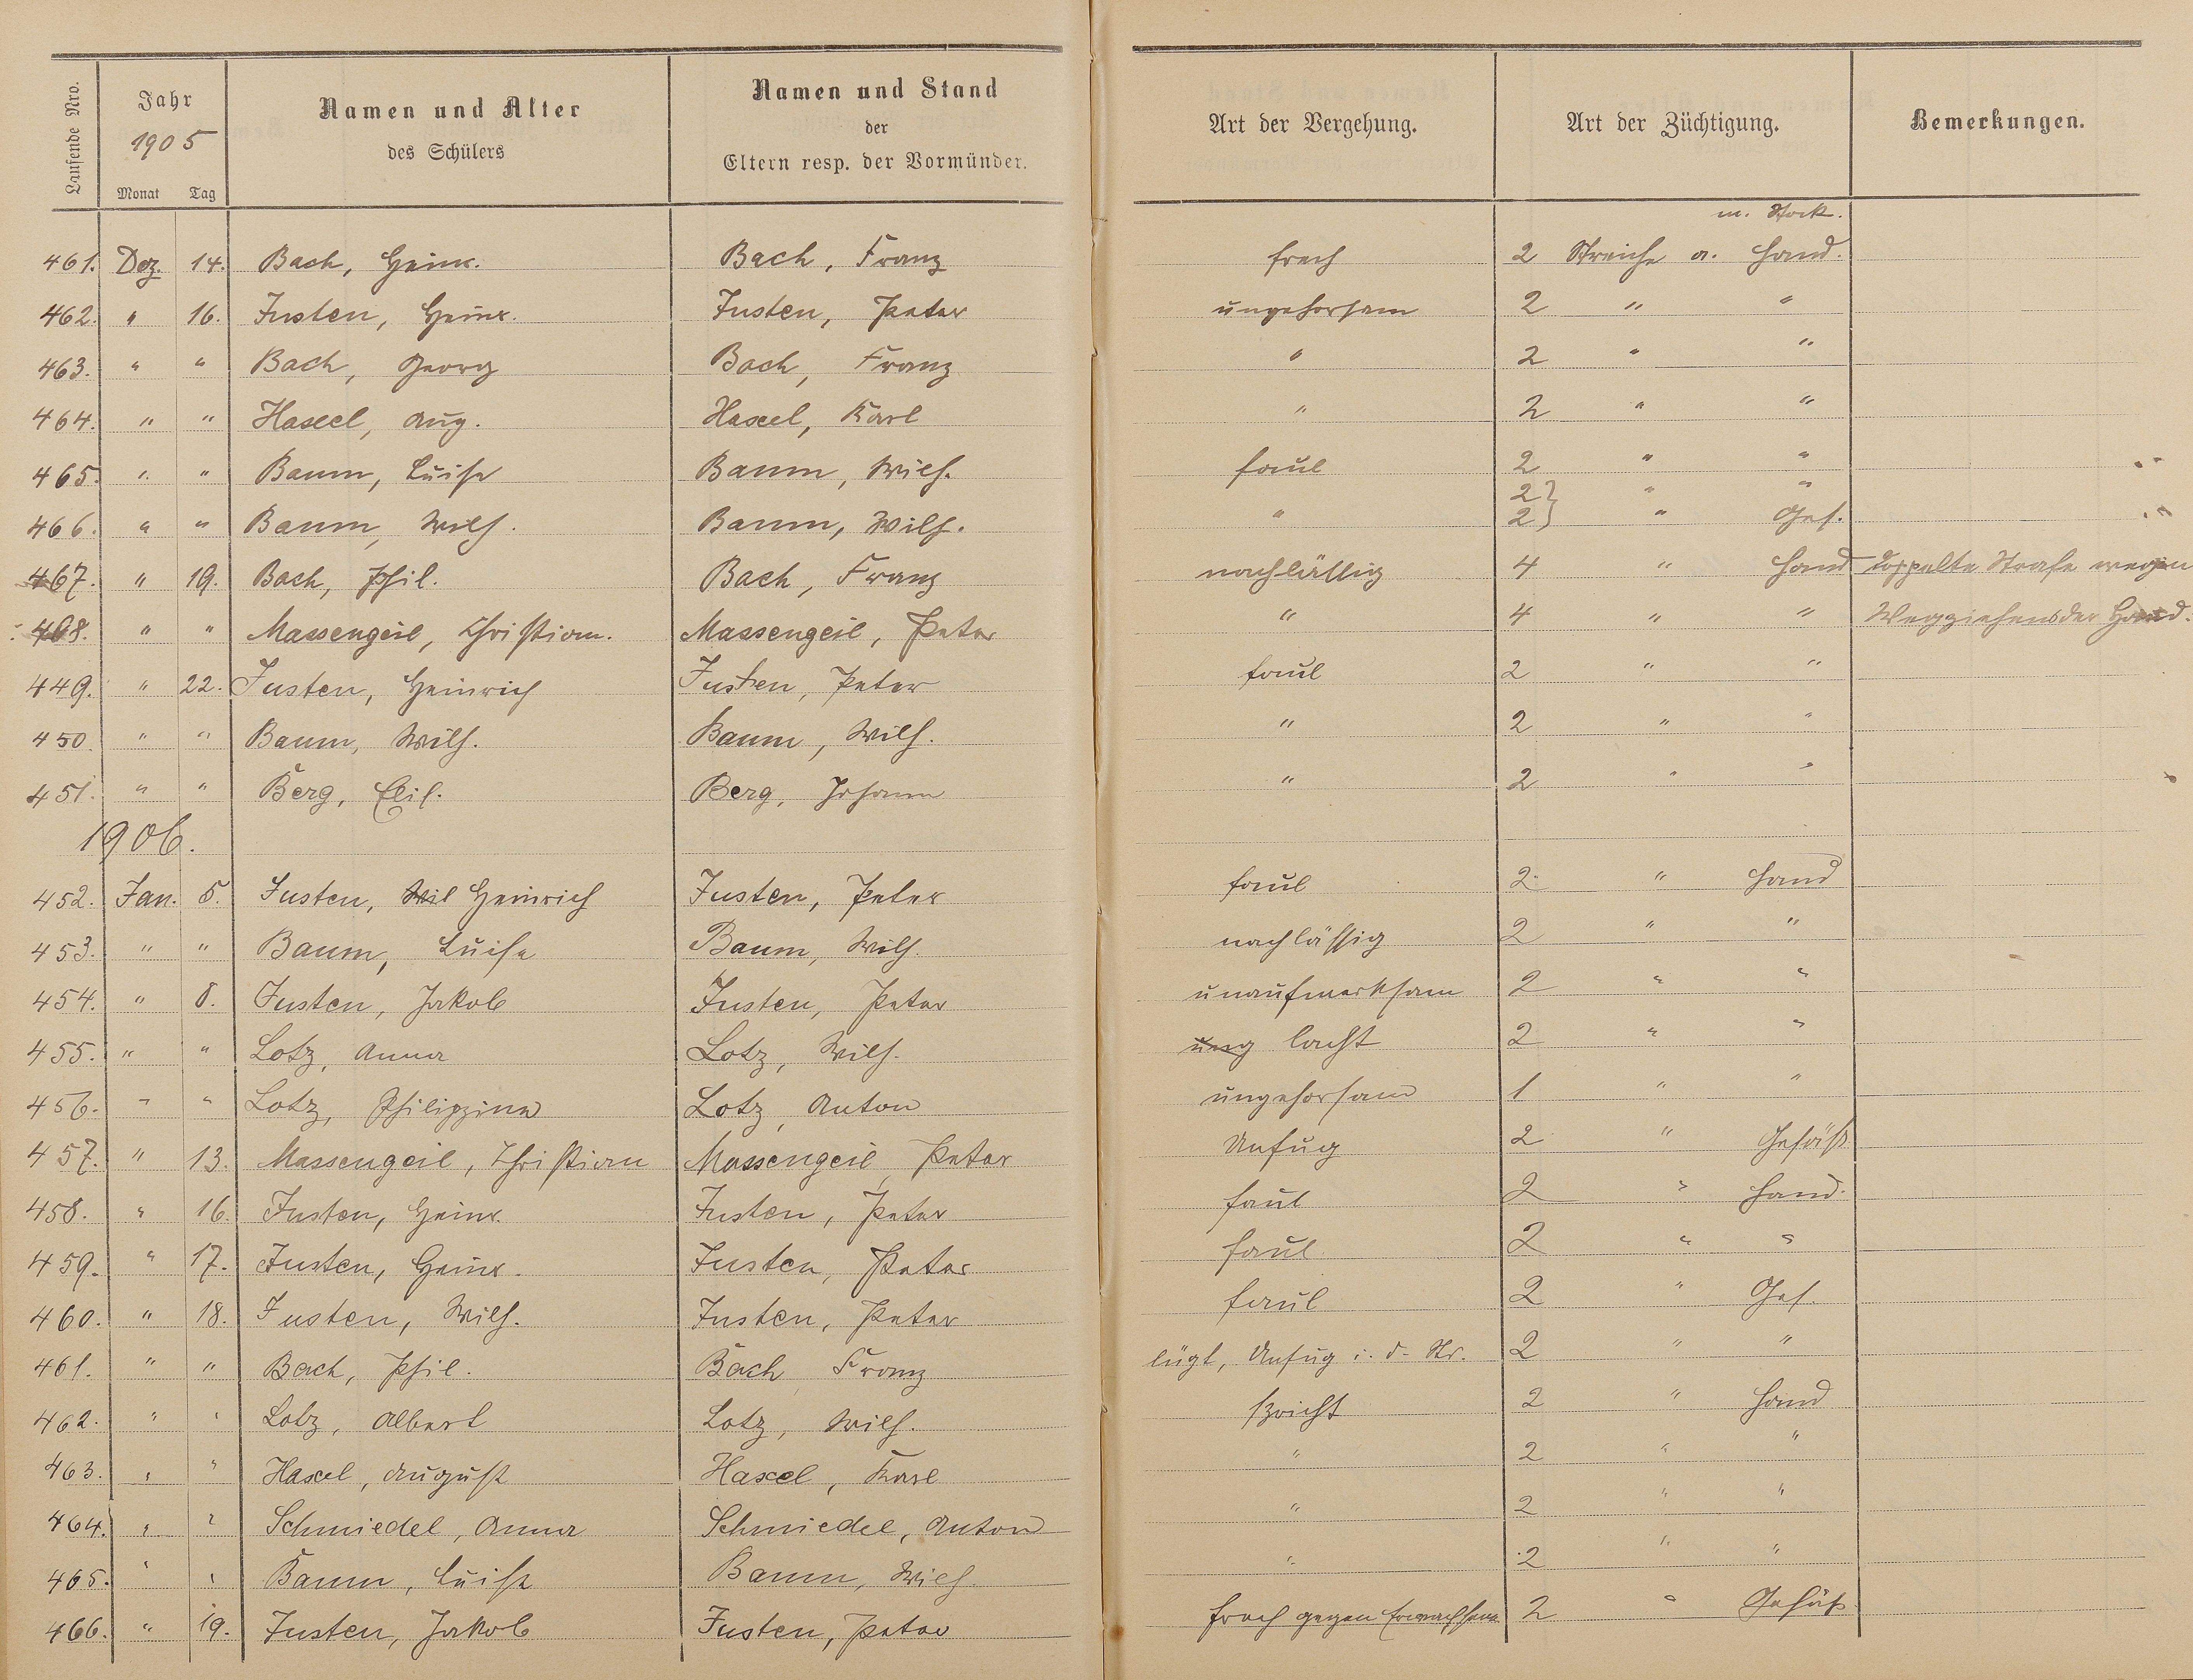 Laufende Nro.
Jahr
1905
Monat Tag
Namen und Alter
des Schülers
Namen und Stand
der
Eltern resp. der Vormünder.
Art der Vergehung.
Art der Züchtigung.
Bemerkungen.
m. Stock.
461. Dez. 14. Bach, Heinr. Bach, Franz frech 2 Streiche a. Hand.
462. " 16. Justen, Heinr. Justen, Peter ungehorsam 2 " "
463. " " Bach, Georg Bach, Franz " 2 " "
464. " " Haxel, Aug. Haxel, Karl " 2 " "
465. " " Baum, Luise Baum, Wilh. faul 2 " "
2} " "
466. " " Baum, Wilh. Baum, Wilh. " 2} " Ges.
467. " 19. Bach, Phil. Bach, Franz nachlässig 4 " Hand doppelte Strafe wegen
468. " " Massengeil, Christian. Massengeil, Peter " 4 " " Wegziehens der Hand.
449. " 22. Justen, Heinrich Justen, Peter faul 2 " "
450. " " Baum, Wilh. Baum, Wilh. " 2 " "
451. " " Berg, Elis. Berg, Johann " 2 " "
1906.
452. Jan. 5. Justen, Wil Heinrich Justen, Peter faul 2 " Hand
453. " " Baum, Luise Baum, Wilh. nachlässig 2 " "
454. " 8. Justen, Jakob Justen, Peter unaufmerksam 2 " "
455. " " Lotz, Anna Lotz, Wilh. ung lacht 2 " "
456. " " Lotz, Philippina Lotz, Anton ungehorsam 1 " "
457. " 13. Massengeil, Christian Massengeil, Peter Unfug 2 " Gesäß
458. " 16. Justen, Heinr. Justen, Peter faul 2 " Hand.
459. " 17. Justen, Heinr. Justen, Peter faul 2 " "
460. " 18. Justen, Wilh. Justen, Peter faul 2 " Ges.
461. " " Bach, Phil. Bach Franz lügt, Unfug i. d. Str. 2 " "
462. " " Lotz, Albert Lotz, Wilh. spricht 2 " Hand
463. " " Haxel, August Haxel, Karl " 2 " "
464. " " Schmiedel, Anna Schmiedel, Anton " 2 " "
465. " " Baum, Luise Baum, Wilh. " 2 " "
466. " 19. Justen, Jakob Justen, Peter frech gegen Erwachsene 2 " Gesäß